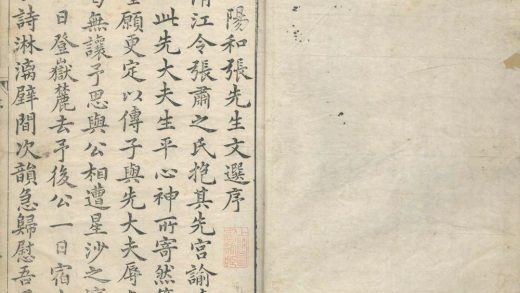 陽和張先生文選序
清江令張肅之氏抱其先宮諭
此先大夫生平心神所寄然
願更定以傳子與先大夫辱
無讓予思與公相遭星沙之
日登嶽麓去予後公一日宿
詩淋漓壁間次韻急歸慰吾